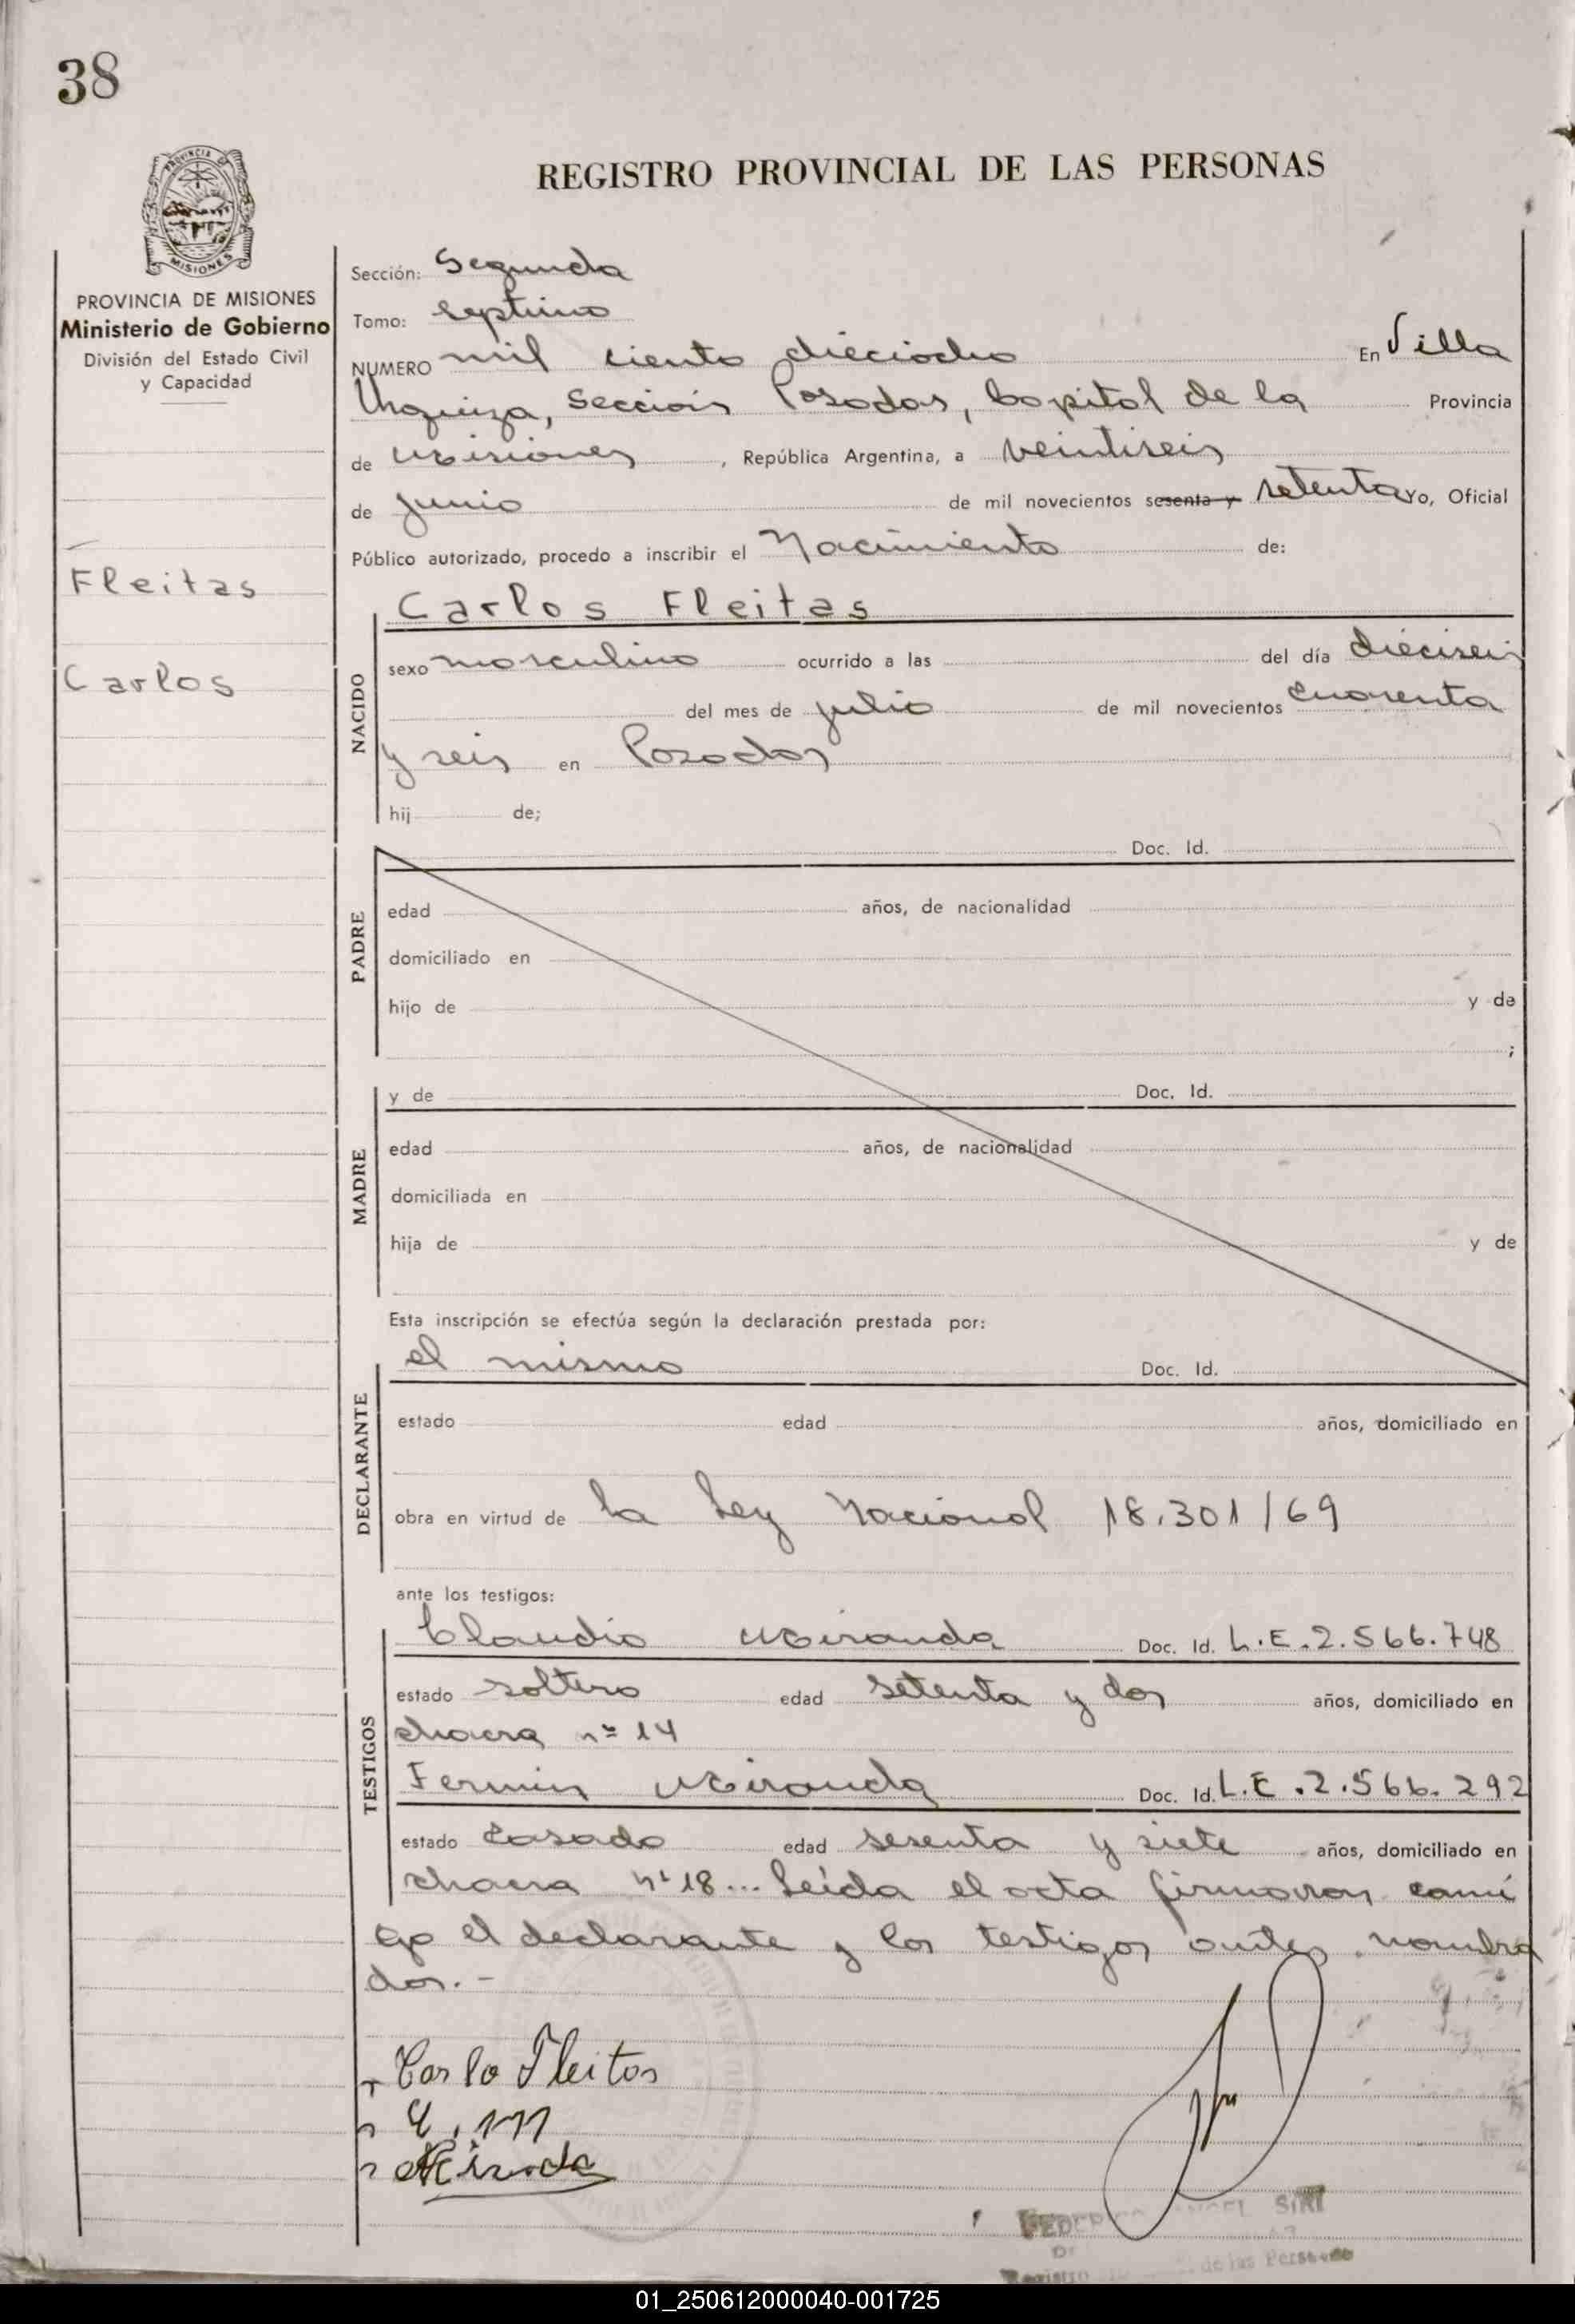 38
REGISTRO PROVINCIAL DE LAS PERSONAS
PROVINCIA
MISIONES
PROVINCIA DE MISIONES
Ministerio de Gobierno
División del Estado Civil
y Capacidad
Fleitas
Carlos
Sección: Segunda
Tomo: septimo
NUMERO mil ciento dieciocho En Villa
Urquiza, Sección Posadas, Capital de la Provincia
de Misiones, República Argentina, a veintiseis
de junio de mil novecientos sesenta y setenta yo, Oficial
Público autorizado, procedo a inscribir el Nacimiento de:
NACIDO
Carlos Fleitas
sexo masculino ocurrido a las del día dieciseis
del mes de julio de mil novecientos cuarenta
y seis en Posadas
hij de;
PADRE
Doc. Id.
edad años, de nacionalidad
domiciliado en
hijo de y de
;
MADRE
y de Doc. Id.
edad años, de nacionalidad
domiciliada en
hija de y de
Esta inscripción se efectúa según la declaración prestada por:
DECLARANTE
el mismo Doc. Id.
estado edad años, domiciliado en
obra en virtud de la Ley Nacional 18.301/69
ante los testigos:
TESTIGOS
Claudio Miranda Doc. Id. L.E.2.566.748
estado soltero edad setenta y dos años, domiciliado en
chacra nº 14
Fermin Miranda Doc. Id. L.E.2.566.292
estado casado edad sesenta y siete años, domiciliado en
chacra nº 18... Leída el acta firmaron conmi
go el declarante y los testigos antes nombra
dos.-
Carlo Fleitas
Miranda
SIRI
Registro de las Personas
01_250612000040-001725